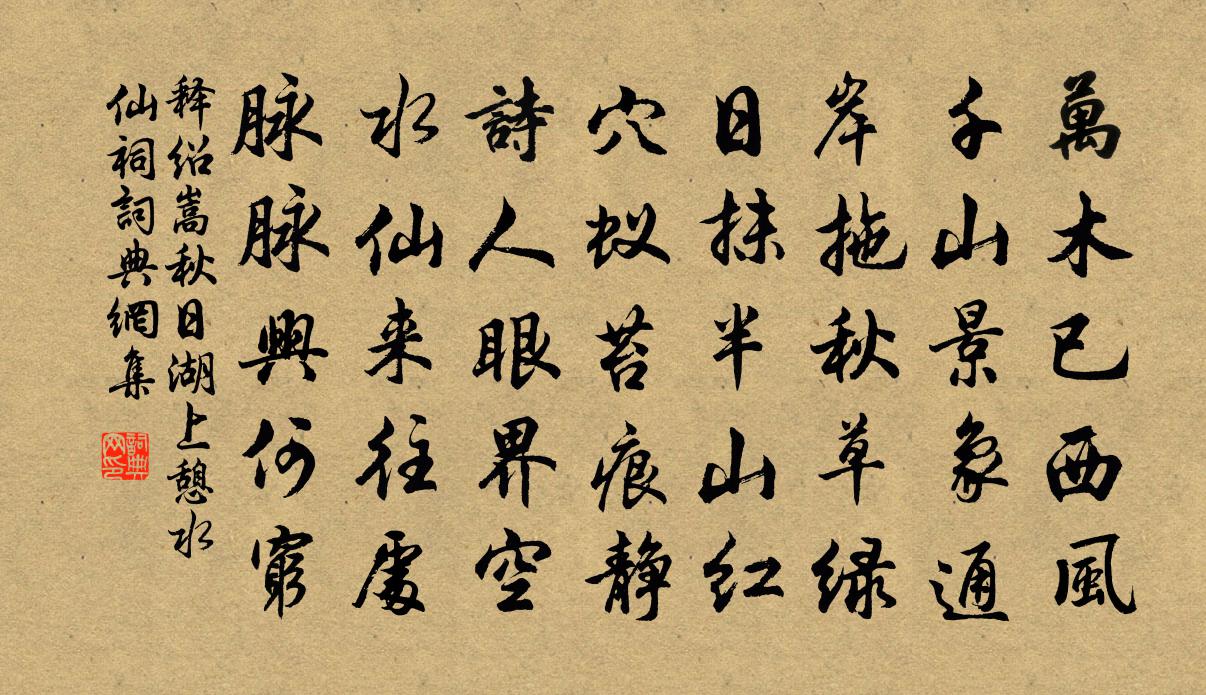 萬木已西風
千山景象通
岸拖秋草绿
日抹半山红
穴蚁苔痕静
詩人眼界空
水仙来往處
脉脉興何窮
释绍嵩秋日湖上憩水
仙祠詞典網集
詞典网印